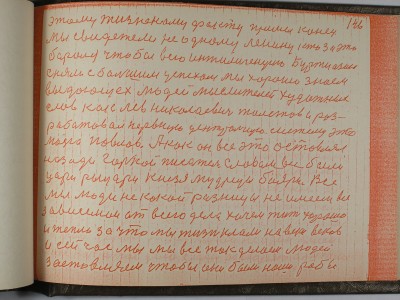 136
этому жизненому факту пришел конец
мы свидетели не одному ленину
барону чтобы всю интилигенцию Буржуазию
сняли с большим успехом мы хорошо знаем
выдающих людей мыслителей художник
слов как лев николаевич толстов и раз-
рабатовал нервную центральную систему это
Акак он все это оставлял
позади горкой писатель словам все были
цари рыцари князя мудреци бояри. Все
мы люди не какой разници не имеем все
зависemии от всего дела хочем жить хорошо
и тепло за что мы жизнями на веки веков
и сей час мы мы все так делаем людей
заставляем чтобы они были наши рабы